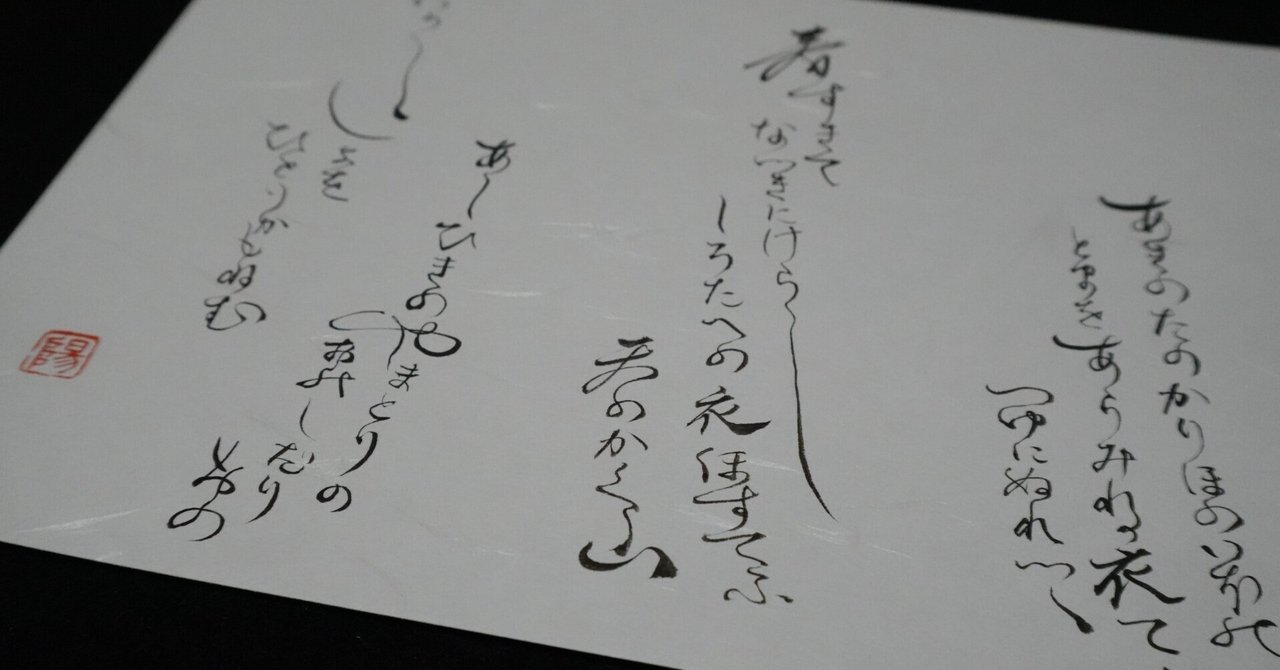 あきのたのかりほのいほの
とまをあらみわか衣て
つゆにぬれつゝ
春すきて
なつきにけらし
しろたへの衣ほすてふ
天のかく山
あしひきのやまとりの
おのしだり
をの
か〱
しよを
ひとりかもねむ
陽